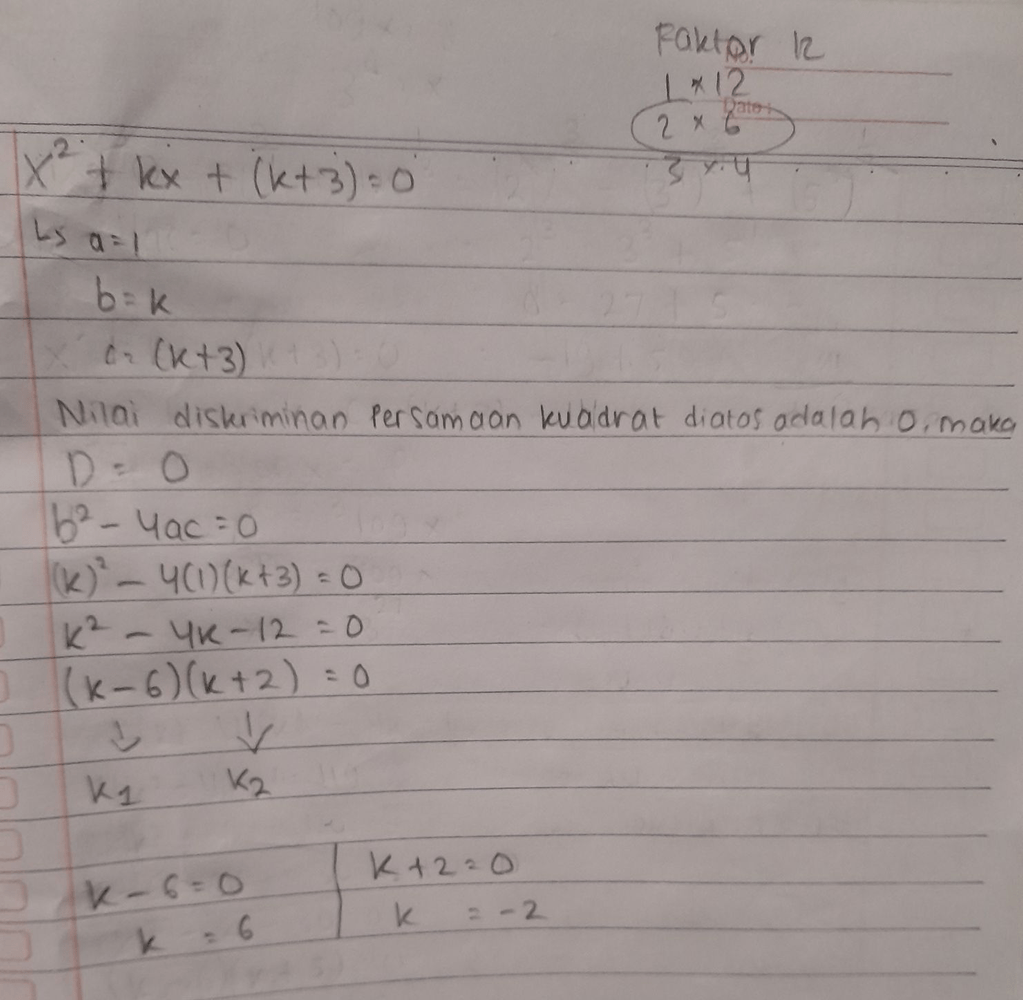 Faktor 12
No:
1 x 12
Date:
2 x 6
3 x 4
x² + kx + (k+3) = 0
Ls a = 1
b = k
c = (k+3)
Nilai diskriminan Persamaan kuadrat diatas adalah 0, maka
D = 0
b² - 4ac = 0
(k)² - 4(1)(k+3) = 0
k² - 4k - 12 = 0
(k-6)(k+2) = 0
↓ ↓
k1 k2
k - 6 = 0 | k + 2 = 0
k = 6 | k = -2